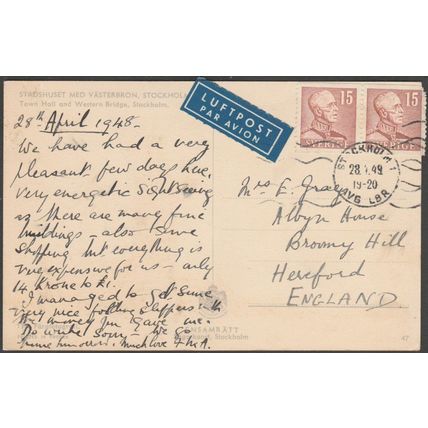 STADSHUSET MED VÄSTERBRON, STOCKHOLM
Town Hall and Western Bridge, Stockholm.
LUFTPOST
PAR AVION
15
15
SVERIGE
SVERIGE
STOCKHOLM 1
28.4.49
19-20
AVG LBR
28th April 1948-
We have had a very
pleasant few days here,
very energetic sightseeing
as there are many fine
buildings - also some
shopping but everything is
very expensive for us - only
14 Krone to £1.
I managed to get some
very nice slippers with
the money you gave me.
Do write soon - We go
home much love
Mrs E. Gray
Alwyn House
Broomy Hill
Hereford
ENGLAND.
ENSAMRÄTT
Stockholm
47